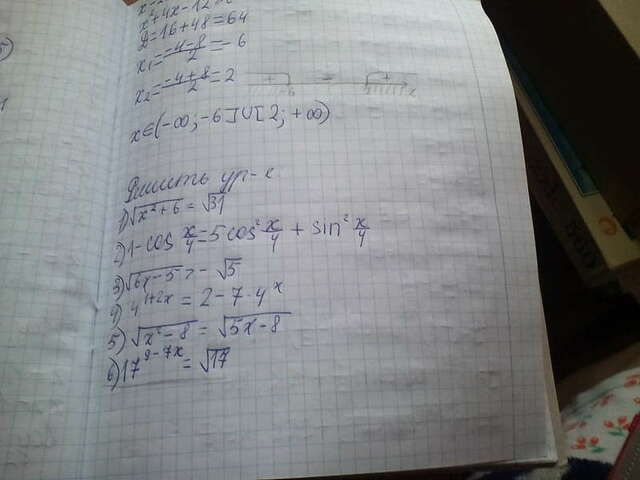 x²+4x-12
D=16+48=64
x₁=(-4-8)/2=-6
x₂=(-4+8)/2=2
+ - +
-6 2 x
x∈(-∞;-6]∪[2;+∞)
Решить ур-е
1)√(x²+6)=√31
2)1-cos x/4=5cos² x/4+sin² x/4
3)√(6x-5)>-√5
4)4^(1+2x)=2-7·4^x
5)√(x²-8)=√(5x-8)
6)17^(9-7x)=√17